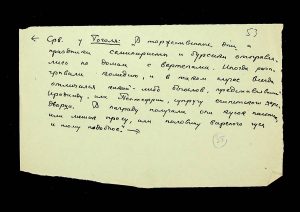 53
← Срв. у Гоголя: В торжественные дни и
праздники семинаристы и бурсаки отправля-
лись по домам с вертепами. Иногда разы-
грывали комедию, и в таком случае всегда
отличался какой-либо богослов, представлявший
Иродиаду, или Пентефрию, супругу египетского царе-
дворца. В награду получали они кусок полотна,
или мешок просу, или половину вареного гуся
и тому подобное. →